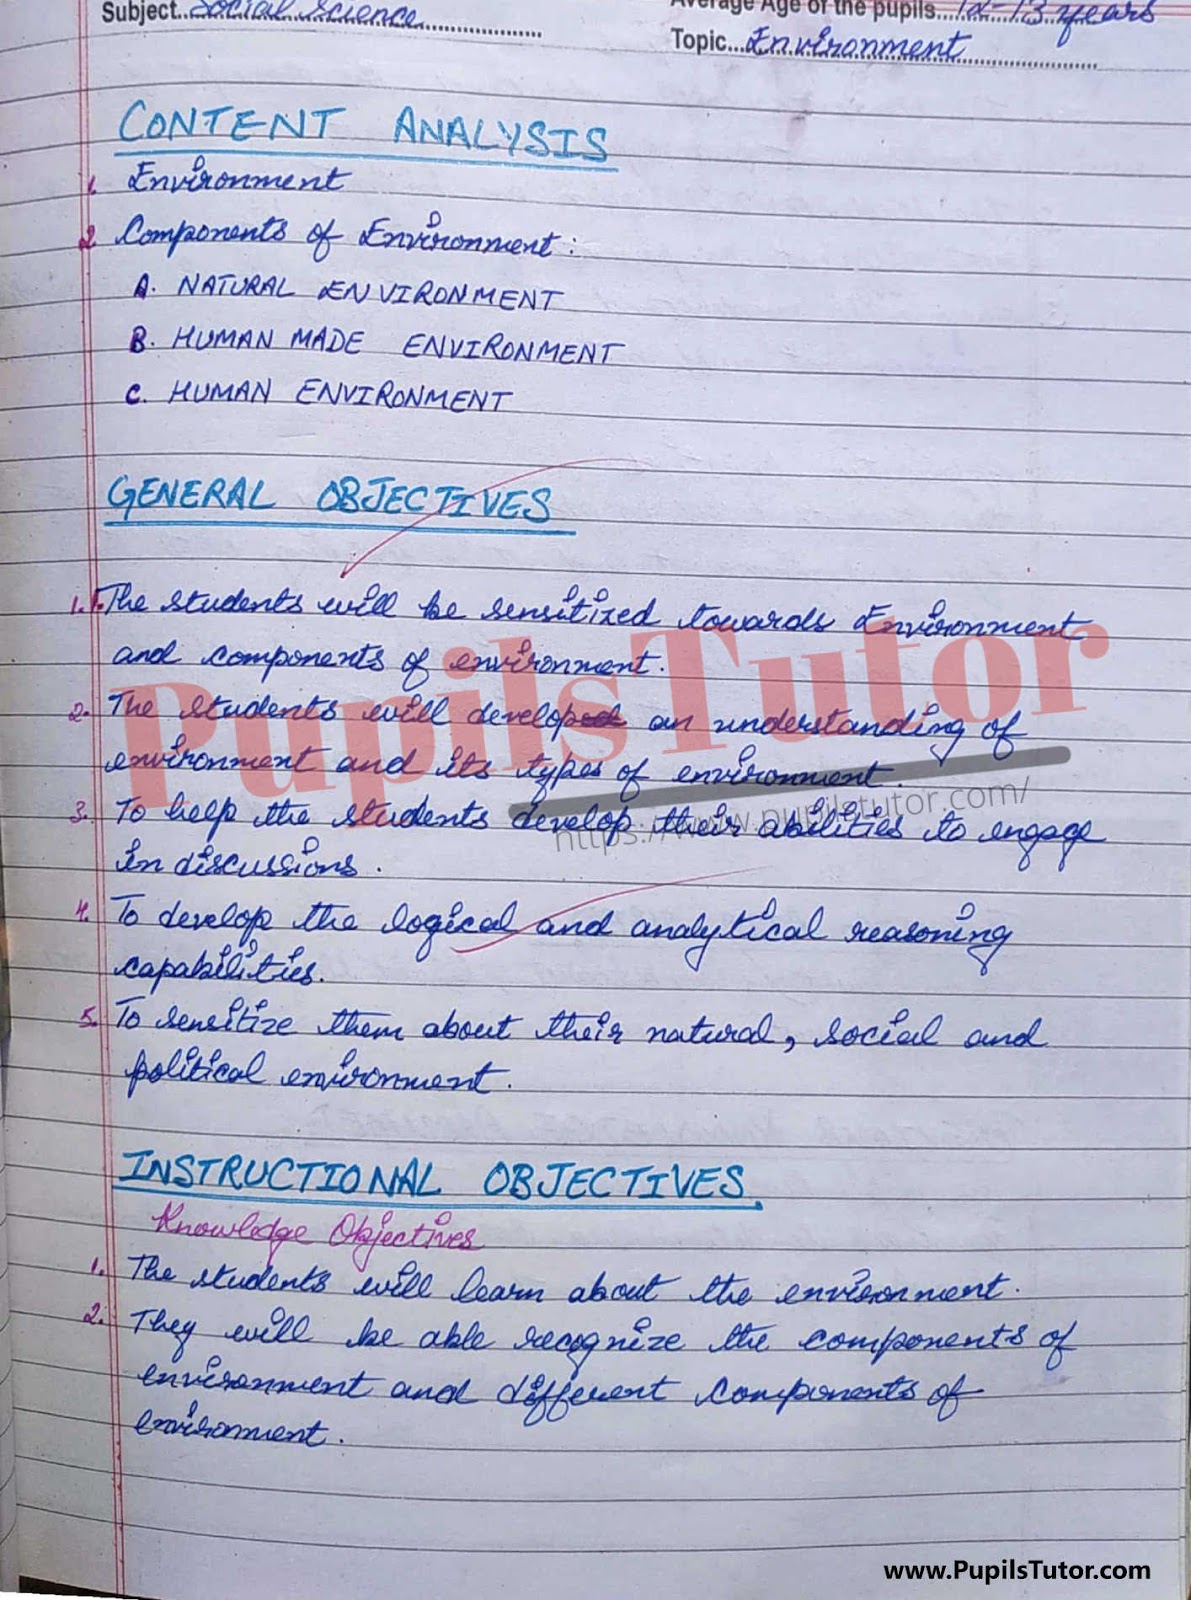 Subject Social Science
Average Age of the pupils....12-13 years
Topic...Environment
CONTENT ANALYSIS
1. Environment
2. Components of Environment :
A. NATURAL ENVIRONMENT
B. HUMAN MADE ENVIRONMENT
C. HUMAN ENVIRONMENT
GENERAL OBJECTIVES
1. The students will be sensitized towards Environment
and components of environment.
2. The students will develop an understanding of
environment and its types of environment.
3. To help the students develop their abilities to engage
in discussions.
4. To develop the logical and analytical reasoning
capabilities.
5. To sensitize them about their natural, social and
political environment.
INSTRUCTIONAL OBJECTIVES.
Knowledge Objectives
1. The students will learn about the environment.
2. They will be able recognize the components of
environment and different components of
environment.
PupilsTutor
https://www.pupilstutor.com/
www.PupilsTutor.com